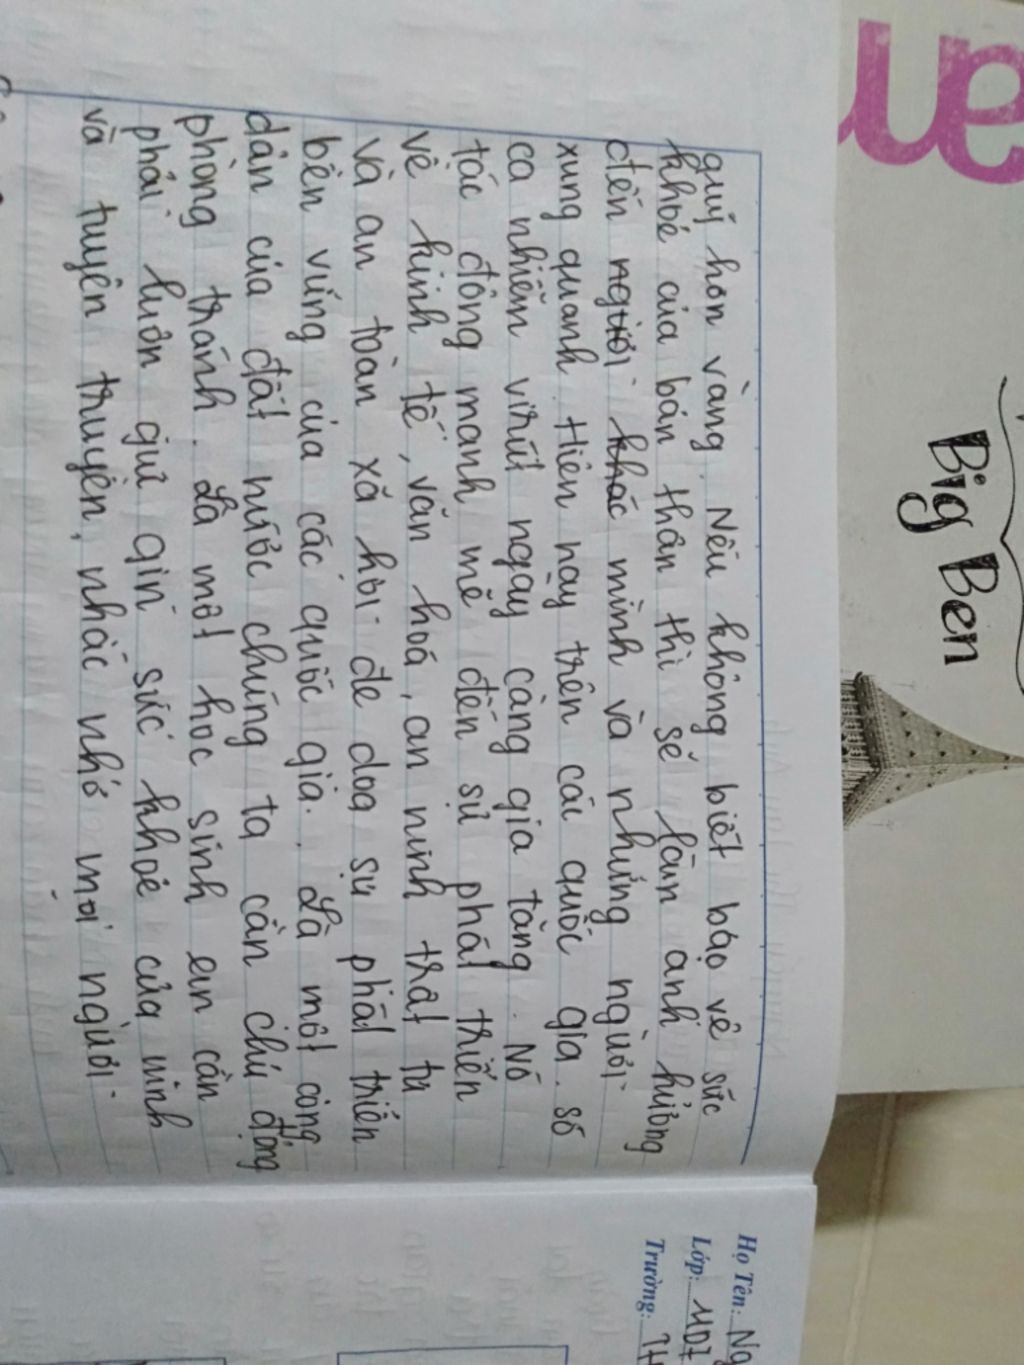 quý hơn vàng. Nếu không biết bảo vệ sức
khoẻ của bản thân thì sẽ làm ảnh hưởng
đến người khác mình và những người
xung quanh. Hiện nay trên các quốc gia. số
ca nhiễm virút ngày càng gia tăng. Nó
tác động mạnh mẽ đến sự phát triển
về kinh tế, văn hoá, an ninh trật tự
và an toàn xã hội. đe doạ sự phát triển
bền vững của các quốc gia. Là một công
dân của đất nước chúng ta cần chủ động
phòng tránh. Là một học sinh em cần
phải luôn giữ gìn sức khoẻ của mình
và tuyên truyền, nhắc nhở mọi người.
Big Ben
Họ Tên: Ng
Lớp: 11D7
Trường: TH